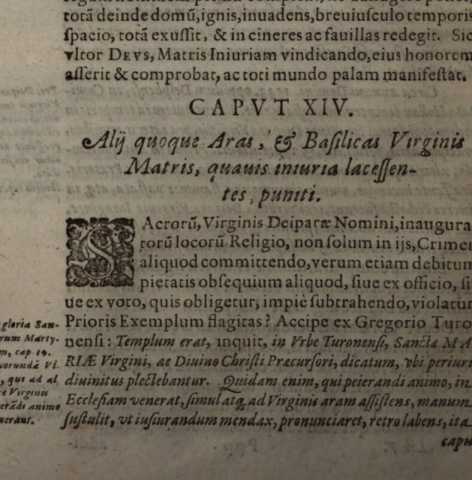 totā deinde domū, ignis, inuadens, breuiusculo temporis
spacio, totā exussit, & in cineres ac fauillas redegit. Sic
vltor DEVS, Matris Iniuriam vindicando, eius honorem
asſerit & comprobat, ac toti mundo palam manifestat.
CAPVT XIV.
Alij quoque Aras, & Baſilicas Virginis
Matris, quauis iniuria laceſſen-
tes, puniti.
SAcrorū, Virginis Deiparæ Nomini, inaugura
torū locorū Religio, non ſolum in ijs, Crimen
aliquod committendo, verum etiam debitum
pietatis obſequium aliquod, ſiue ex officio, ſi
ue ex voto, quis obligetur, impie ſubtrahendo, violatur
Prioris Exemplum flagitas? Accipe ex Gregorio Turo
nenſi: Templum erat, inquit, in Vrbe Turonenſi, Sancta MA
RIÆ Virgini, ac Diuino Chriſti Præcurſori, dicatum, vbi periuri
diuinitus plectebantur. Quidam enim, qui peierandi animo, in
Eccleſiam venerat, ſimulatq, ad Virginis aram aſſiſtens, manum
ſuſtulit, vt iuſiurandum mendax, pronunciaret, retro labens, ita
capu
gloria San-
rum Marty-
m, cap 19.
, qui ad al
e Virginis
erādi animo
nerant.